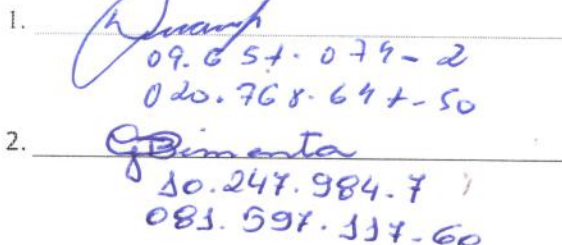 1.
09.657.074-2
020.768.647-50
2. GPimenta
10.247.984.7
081.597.117-60